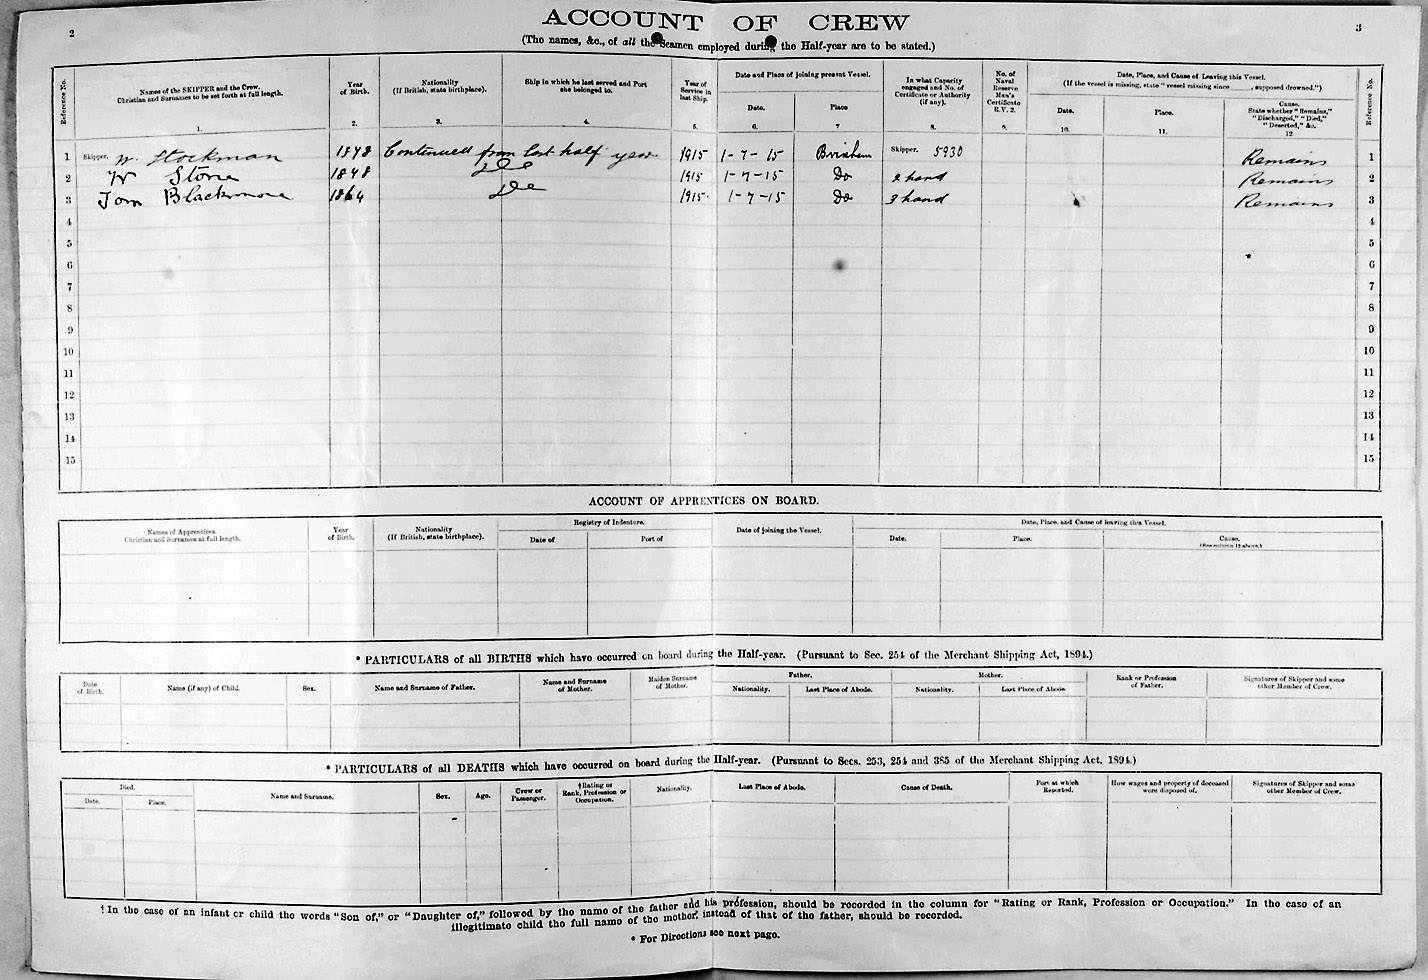 2
ACCOUNT OF CREW
3
(The names, &c., of all the Seamen employed during the Half-year are to be stated.)
Reference No.
Names of the SKIPPER and the Crew.
Christian and Surnames to be set forth at full length.
1.
Year of Birth.
2.
Nationality
(If British, state birthplace).
3.
Ship in which he last served and Port she belonged to.
4.
Year of Service in last Ship.
5.
Date and Place of joining present Vessel.
Date.
6.
Place
7
In what Capacity engaged and No. of Certificate or Authority (if any).
8.
No. of Naval Reserve Man's Certificate R.V. 2.
9.
Date, Place, and Cause of Leaving this Vessel.
(If the vessel is missing, state "vessel missing since ____, supposed drowned.")
Date.
10.
Place.
11.
Cause.
State whether "Remains," "Discharged," "Died," "Deserted," &c.
12
Reference No.
1 Skipper. W. Stockman 1878 Continued from last half year 1915 1-7-15 Brixham Skipper. 5930 Remains 1
2 W Stone 1898 Do 1915 1-7-15 Do 2 hand Remains 2
3 Tom Blackmore 1864 Do 1915. 1-7-15 Do 3 hand Remains 3
4 4
5 5
6 6
7 7
8 8
9 9
10 10
11 11
12 12
13 13
14 14
15 15
ACCOUNT OF APPRENTICES ON BOARD.
Names of Apprentices.
Christian and Surnames at full length.
Year of Birth.
Nationality
(If British, state birthplace).
Registry of Indenture.
Date of
Port of
Date of joining the Vessel.
Date, Place, and Cause of leaving this Vessel.
Date.
Place.
Cause.
(See column 12 above.)
* PARTICULARS of all BIRTHS which have occurred on board during the Half-year. (Pursuant to Sec. 254 of the Merchant Shipping Act, 1894.)
Date of Birth.
Name (if any) of Child.
Sex.
Name and Surname of Father.
Name and Surname of Mother.
Maiden Surname of Mother.
Father.
Nationality.
Last Place of Abode.
Mother.
Nationality.
Last Place of Abode.
Rank or Profession of Father.
Signatures of Skipper and some other Member of Crew.
* PARTICULARS of all DEATHS which have occurred on board during the Half-year. (Pursuant to Secs. 253, 254 and 385 of the Merchant Shipping Act, 1894.)
Died.
Date.
Place.
Name and Surname.
Sex.
Age.
Crew or Passenger.
†Rating or Rank, Profession or Occupation.
Nationality.
Last Place of Abode.
Cause of Death.
Port at which Reported.
How wages and property of deceased were disposed of.
Signatures of Skipper and some other Member of Crew.
† In the case of an infant or child the words "Son of," or "Daughter of," followed by the name of the father and his profession, should be recorded in the column for "Rating or Rank, Profession or Occupation." In the case of an
illegitimate child the full name of the mother, instead of that of the father, should be recorded.
* For Directions see next page.